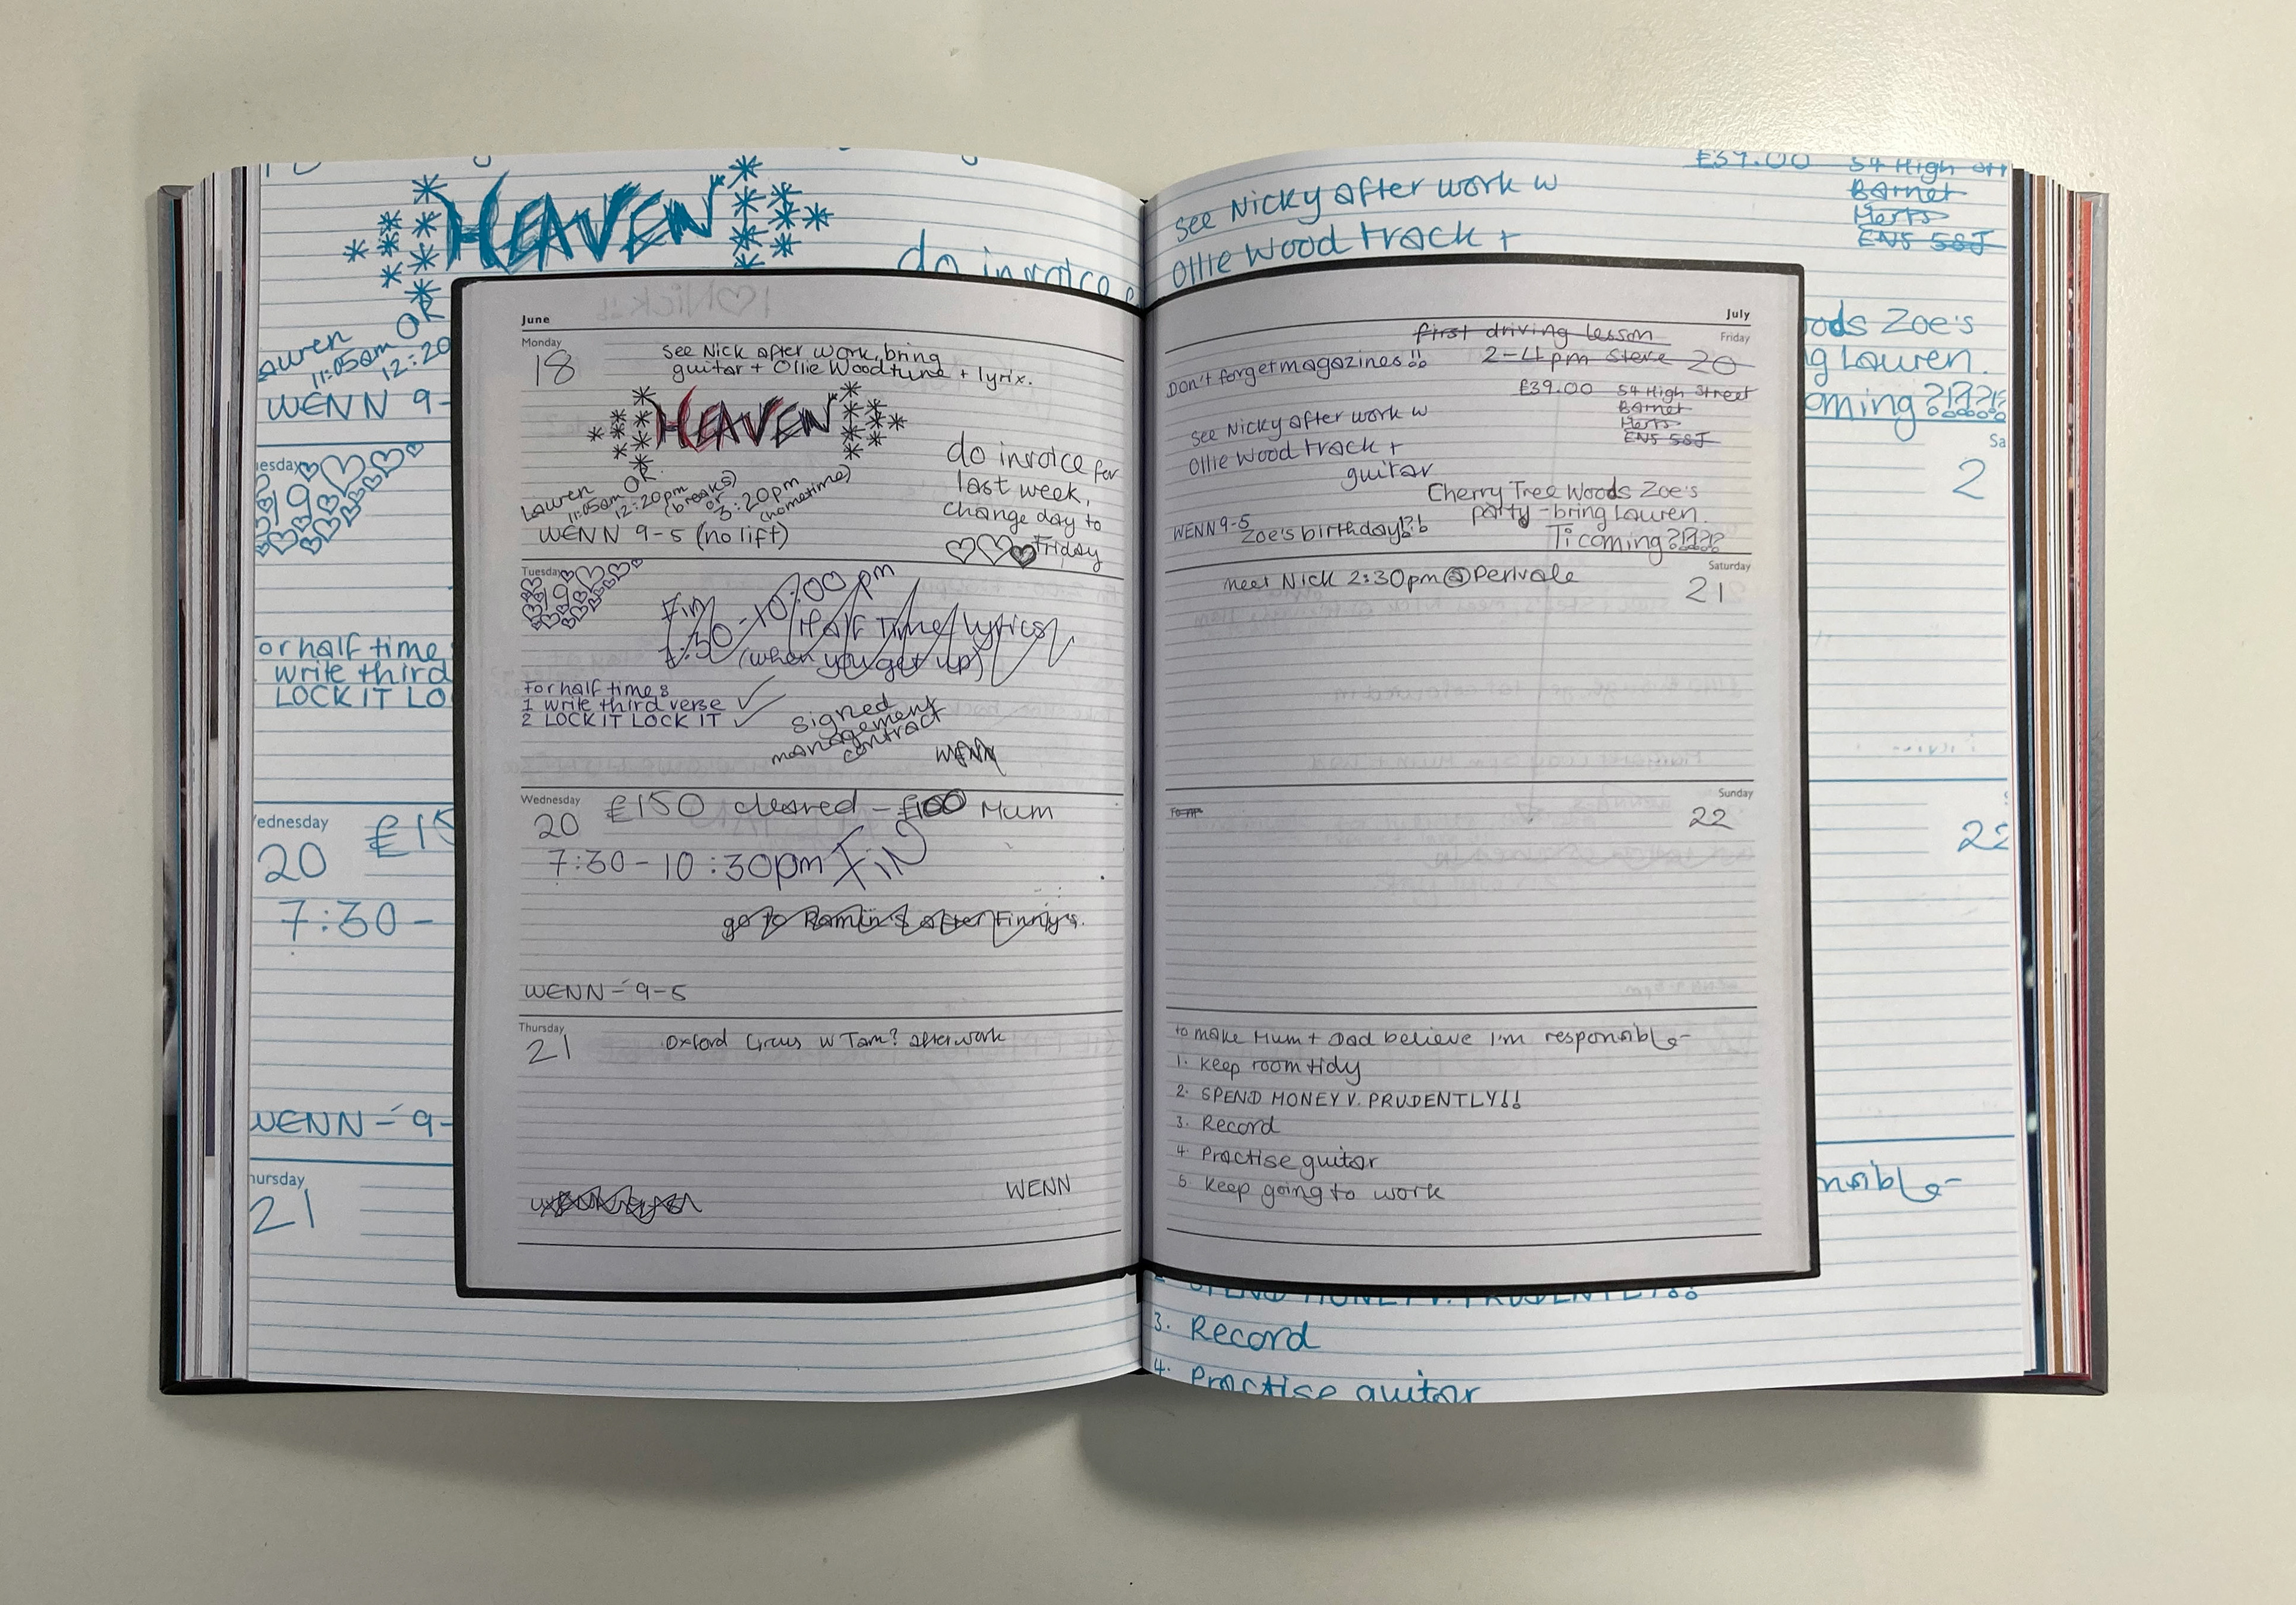 HEAVEN
do invoice
Lauren
OK
11:05am
12:20
WENN 9-
esday
19
or half time
write third
LOCK IT LO
ednesday
20
£15
7:30-
WENN - 9-
hursday
21
June
Monday
18
see Nick after work, bring
guitar + Ollie Wood tune + lyrix.
HEAVEN
Lauren
OK
11:05am
12:20pm
(breaks)
or
3:20pm
(hometime)
WENN 9-5 (no lift)
do invoice for
last week,
change day to
Friday
Tuesday
19
Fin
7:30-10:00pm
Half Time lyrics
(when you get up)
For half time:
1 write third verse
2 LOCK IT LOCK IT
signed
management
contract
WENN
Wednesday
20
£150 cleared - £100 Mum
7:30-10:30pm FIN
go to Ramin's after Finny's.
WENN - 9-5
Thursday
21
Oxford Circus w Tam? after work
WENN
see Nicky after work w
Ollie Wood track +
£39.00 54 High
Barnet
Herts
EN5 5SJ
July
Friday
20
first driving lesson
2-4pm Steve
Don't forget magazines!!
£39.00 54 High Street
Barnet
Herts
EN5 5SJ
see Nicky after work w
Ollie Wood track +
guitar
Cherry Tree Woods Zoe's
party - bring Lauren.
Ti coming?!?!?!
WENN 9-5
Zoe's birthday!?!
Saturday
21
meet Nick 2:30pm @ Perivale
Sunday
22
to make Mum + Dad believe I'm responsible-
1. keep room tidy
2. SPEND MONEY V. PRUDENTLY!!
3. Record
4. Practise guitar
5. keep going to work
ods Zoe's
g Lauren.
oming?!?!?!
Sa
2
22
nsible-
2. SPEND MONEY V. PRUDENTLY!!
3. Record
4. Practise guitar